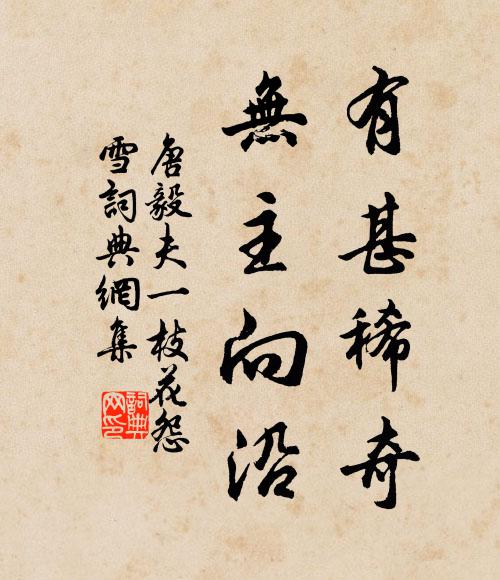 有甚稀奇
無主向沿
唐毅夫一枝花怨
雪詞典網集
詞典网印